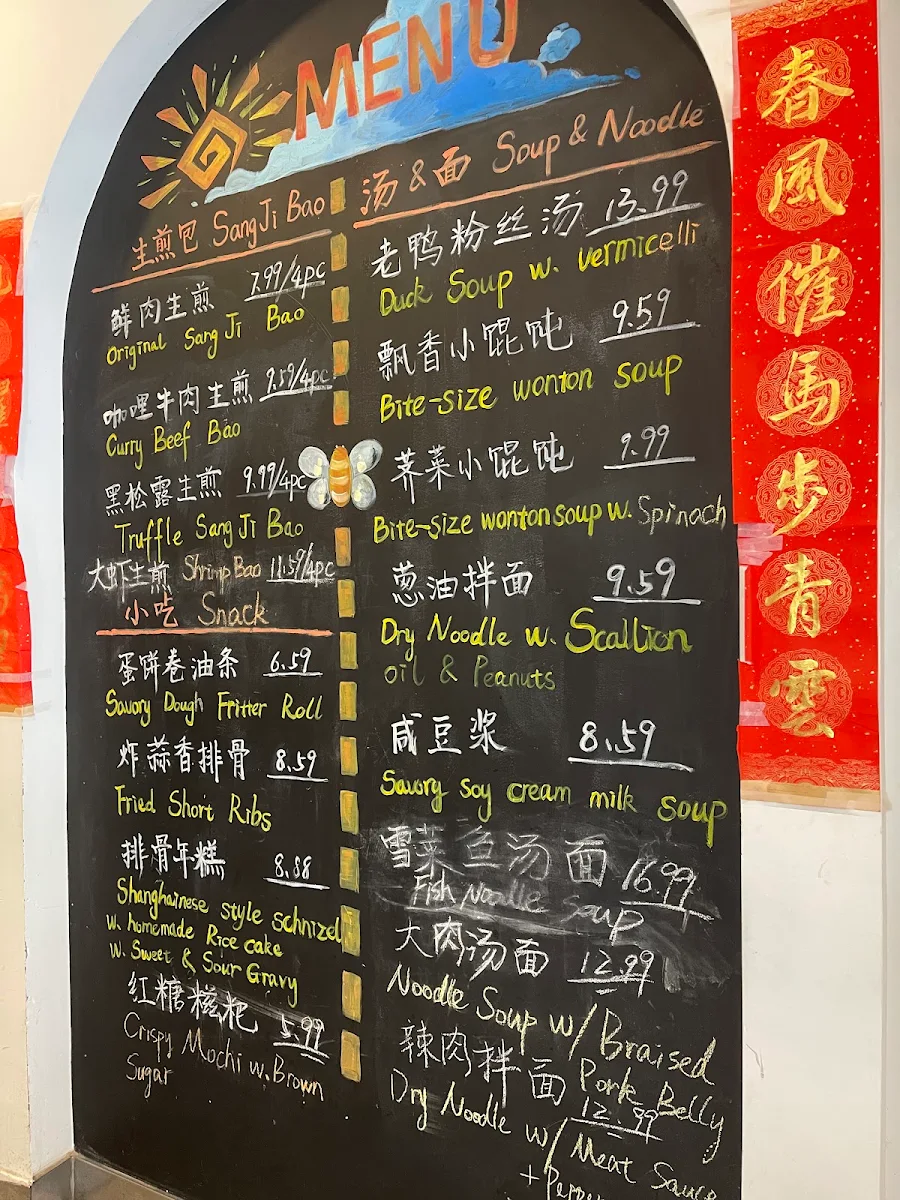 MENU
生煎包 SangJi Bao
鲜肉生煎 7.99/4pc
Original Sang Ji Bao
咖哩牛肉生煎 9.59/4pc
Curry Beef Bao
黑松露生煎 9.99/4pc
Truffle Sang Ji Bao
大虾生煎 Shrimp Bao 11.59/4pc
小吃 Snack
蛋饼卷油条 6.59
Savory Dough Fritter Roll
炸蒜香排骨 8.59
Fried Short Ribs
排骨年糕 8.88
Shanghainese style schnizel
w. homemade Rice cake
w. Sweet & Sour Gravy
红糖糍粑 5.99
Crispy Mochi w. Brown
Sugar
汤&面 Soup & Noodle
老鸭粉丝汤 13.99
Duck Soup w. vermicelli
飘香小馄饨 9.59
Bite-size wonton soup
荠菜小馄饨 9.99
Bite-size wonton soup w. Spinach
葱油拌面 9.59
Dry Noodle w. Scallion
oil & Peanuts
咸豆浆 8.59
Savory soy cream milk soup
雪菜鱼汤面 16.99
Fish Noodle soup
大肉汤面 12.99
Noodle Soup w/ Braised
Pork Belly
辣肉拌面 12.99
Dry Noodle w/ Meat Sauce
春風催馬步青雲